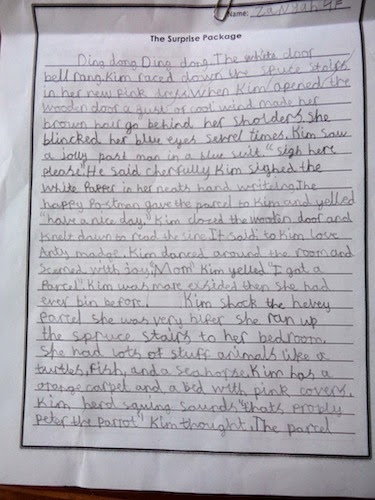 Name: Zaniyah 4F
The Surprise Package
Ding dong Ding dong. The white door
bell rang. Kim raced down the spruce stairs
in her new pink dress. When Kim opened the
wooden door a gust of cool wind made her
brown hair go behind her sholders. She
blincked her blue eyes sebrel times. Kim saw
a jolly post man in a blue suit. "sigh here
please" He said cherfully Kim sighed the
white Papper in her neats hand writeing. The
happy Postman gave the parcel to Kim and yelled
"have a nice day," Kim closed the wooden door and
knelt down to read the sine. It said to Kim love
Anty madge. Kim danced around the room and
Scemed with Joy, Mom" Kim yelled "I got a
Parcel" Kim was more exsided then she had
ever bin before. Kim shock the hevey
Parcel she was very hiper she ran up
the spruce stairs to her bedroom.
She had lots of stuff animals like a
turtles, Fish, and a sea horse. Kim has a
orange carpet and a bed with pink covers.
Kim herd squing sounds "thats probly
peter the Parrot" Kim thought. The parcel